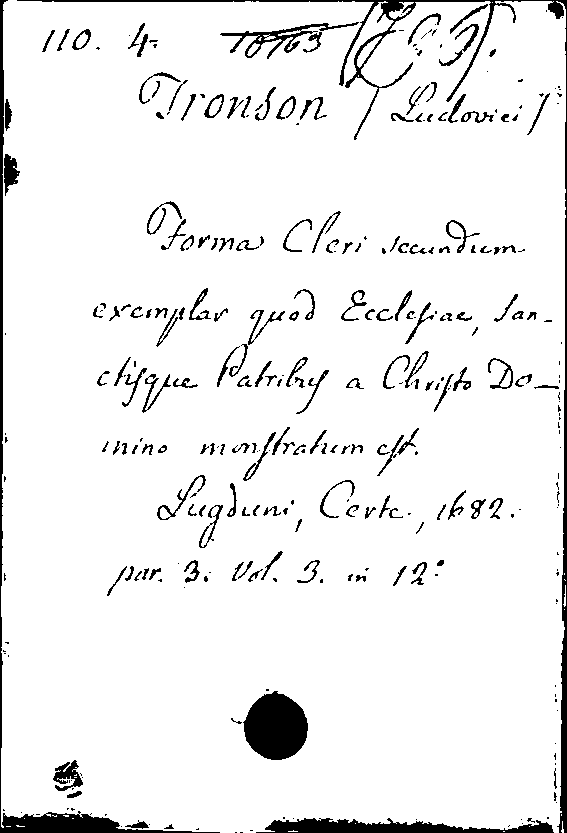 110. 4. 10163
Tronson / Ludovici /
Forma Cleri secundum
exemplar quod Ecclesiae, San-
ctisque Patribus a Christo Do-
mino monstratum est.
Lugduni, Certe., 1682.
par. 3. Vol. 3. in 12º